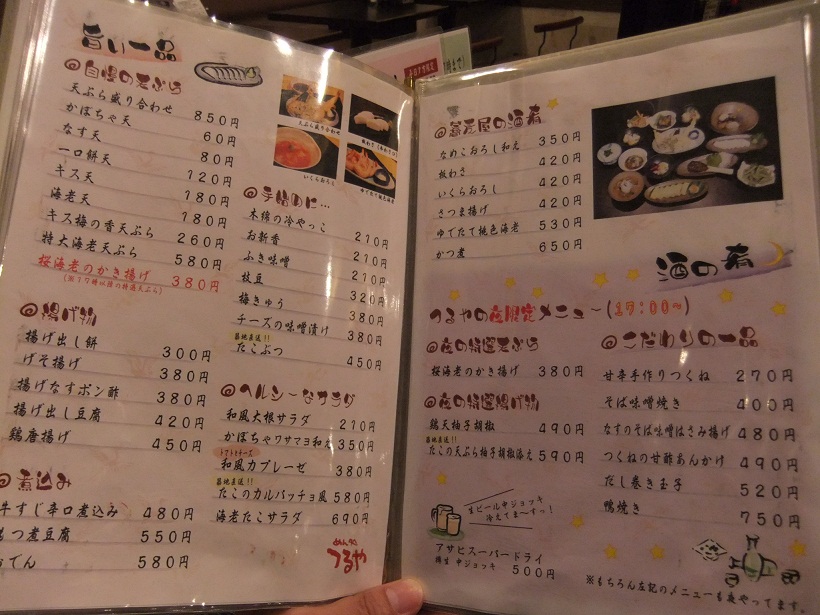 旨い一品
◎自慢の天ぷら
天ぷら盛り合わせ 850円
かぼちゃ天 60円
なす天 80円
一口餅天 120円
キス天 180円
海老天 180円
キス梅の香天ぷら 260円
特大海老天ぷら 580円
桜海老のかき揚げ 380円
◎揚げ物
揚げ出し餅 300円
げそ揚げ 380円
揚げなすポン酢 380円
揚げ出し豆腐 420円
鶏唐揚げ 450円
◎煮込み
牛すじ辛口煮込み 480円
もつ煮豆腐 550円
おでん 580円
天ぷら盛り合わせ
いくらおろし
ゆでたて桃色海老
◎手始めに…
木綿の冷やっこ 210円
お新香 210円
ふき味噌 210円
枝豆 320円
梅きゅう 380円
チーズの味噌漬け 380円
築地直送!!
たこぶつ 450円
◎ヘルシーなサラダ
和風大根サラダ 210円
かぼちゃワサマヨ和え 350円
トマトとチーズ
和風カプレーゼ 380円
築地直送!!
たこのカルパッチョ風 580円
海老たこサラダ 690円
つるや
◎蕎麦屋の酒肴
なめこおろし和え 350円
板わさ 420円
いくらおろし 420円
さつま揚げ 420円
ゆでたて桃色海老 530円
かつ煮 650円
酒の肴
つるやの夜限定メニュー(17:00〜)
◎夜の特選天ぷら
桜海老のかき揚げ 380円
◎夜の特選揚げ物
鶏天柚子胡椒 490円
築地直送!!
たこの天ぷら柚子胡椒添え 590円
生ビール中ジョッキ
冷えてま〜すっ!
アサヒスーパードライ
樽生 中ジョッキ 500円
◎こだわりの一品
甘辛手作りつくね 270円
そば味噌焼き 400円
なすのそば味噌はさみ揚げ 480円
つくねの甘酢あんかけ 490円
だし巻き玉子 520円
鴨焼き 750円
※もちろん左記のメニューも夜やってます。